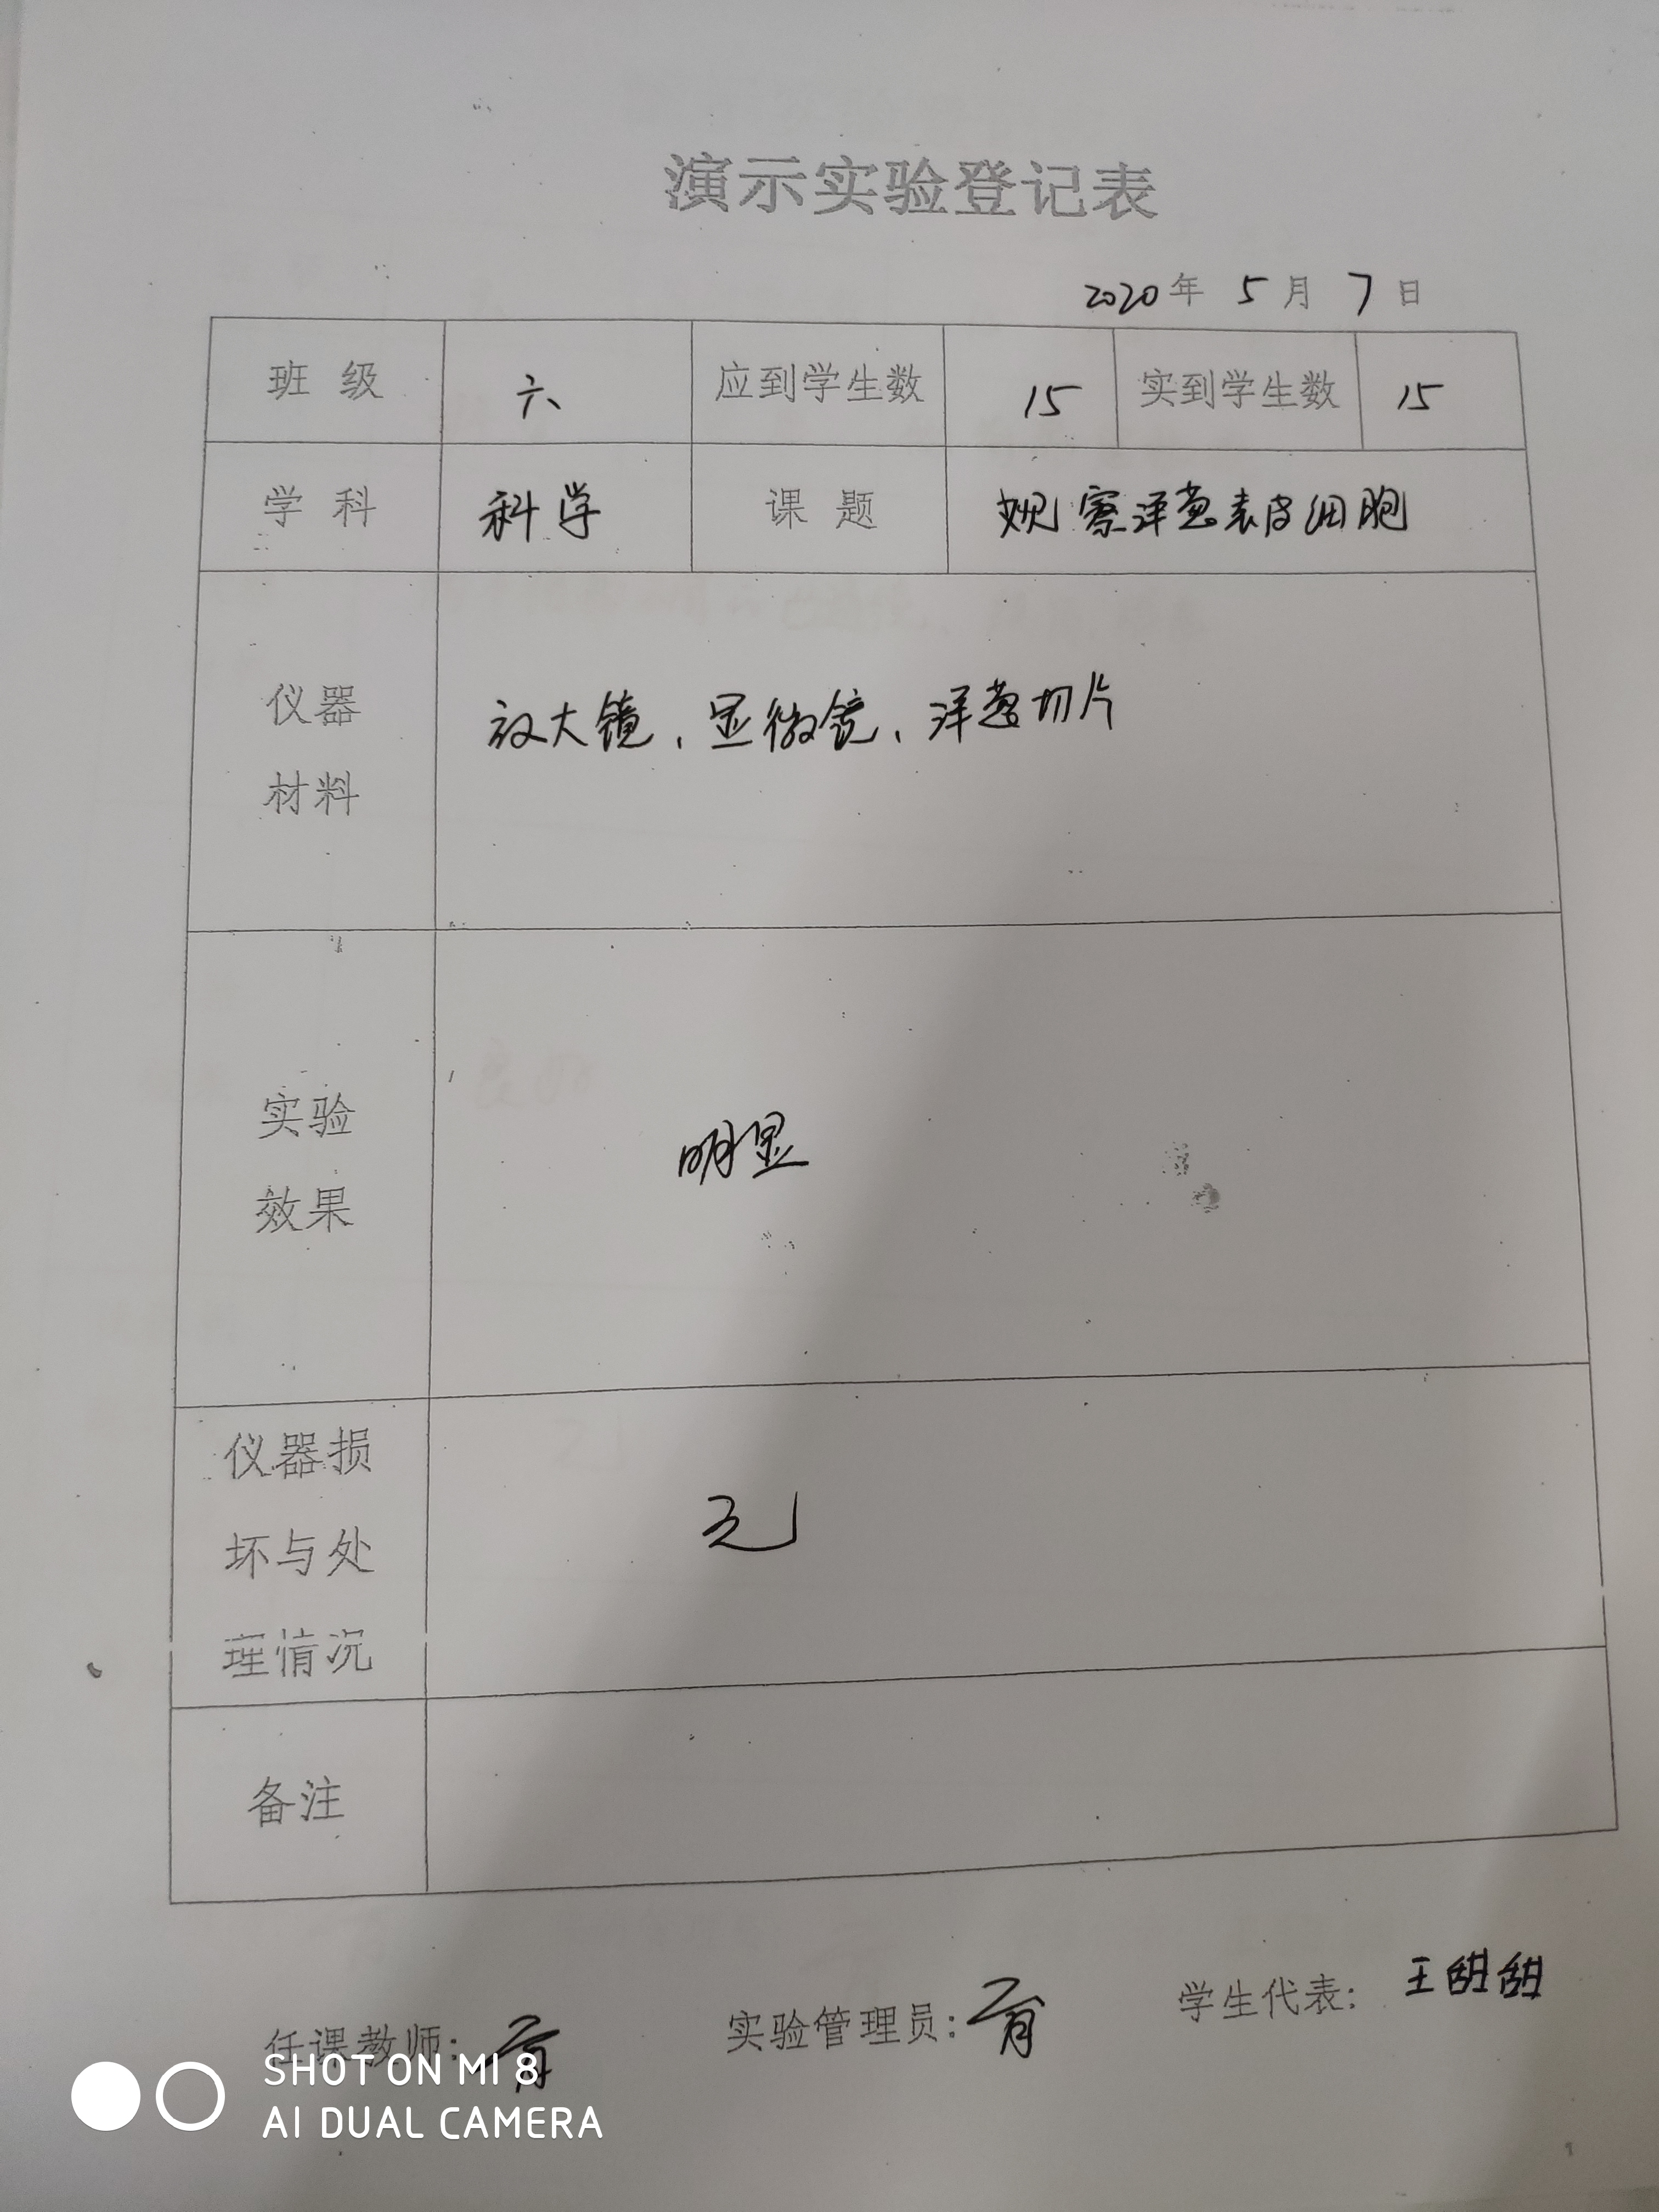 演示实验登记表
2020年 5月 7日
班级 六 应到学生数 15 实到学生数 15
学科 科学 课题 观察洋葱表皮细胞
仪器
材料
放大镜、显微镜、洋葱切片
实验
效果
明显
仪器损
坏与处
理情况
无
备注
任课教师:
实验管理员:
学生代表: 王甜甜
SHOT ON MI 8
AI DUAL CAMERA
1